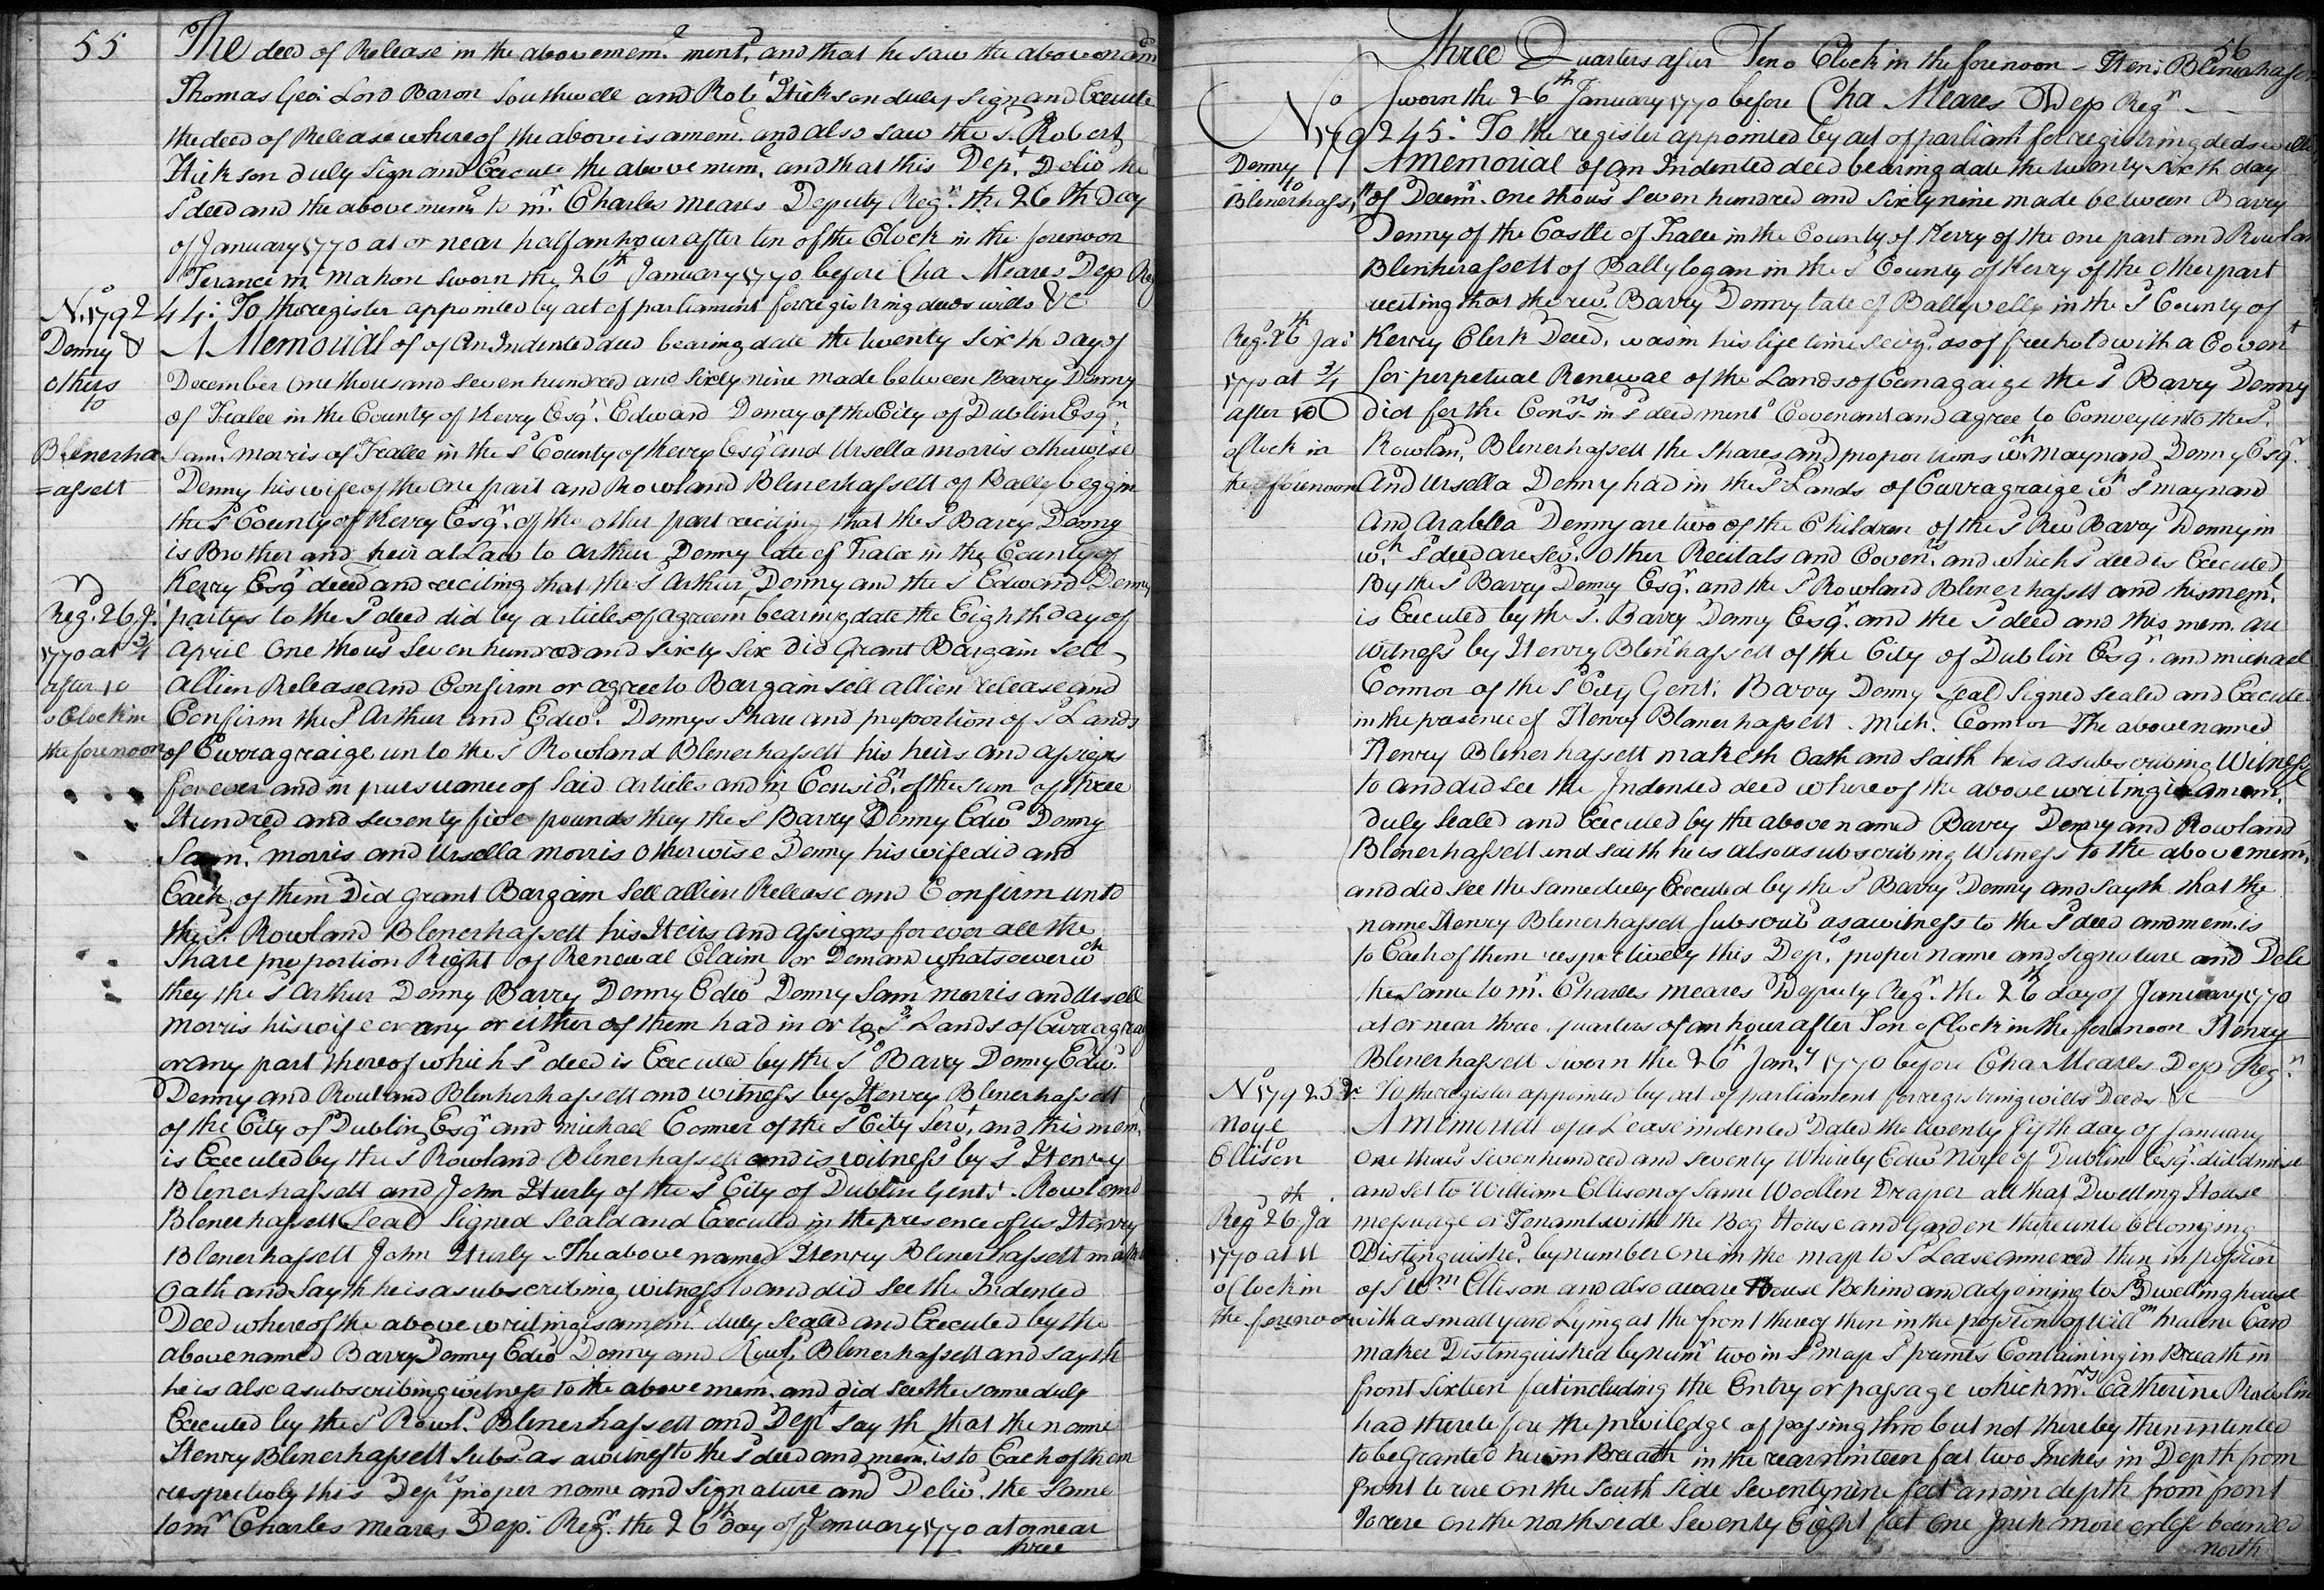 55
The deed of Release in the abovemem.l ment.d and that he saw the abovenam
Thomas Geo: Lord Baron Southwell and Rob.t Hickson duly sign and Execute
the deed of Release whereof the above is a mem.l and also saw the s.d Robert
Hickson duly Sign and Execute the above mem.l and that this Dep.t Deliv.d the
s.d deed and the above mem.l to m.r Charles Meares Deputy Reg.r the 26th Day
of January 1770 at or near half an hour after ten of the Clock in the forenoon
Terance m.c Mahon sworn the 26th January 1770 before Cha Meares Dep Reg
No. 17924 4: To the register appointed by act of parliament for registring deeds wills &c
Denny & others to Blenerha=assett
A Memorial of of An Indented deed bearing date the twenty sixth day of
December One thousand seven hundred and sixty nine made between Barry Denny
of Tralee in the County of Kerry Esq.r Edward Denny of the City of Dublin Esq.r
Sam.l Morris of Tralee in the s.d County of Kerry Esq.r and Ursella Morris otherwise
Denny his wife of the One part and Rowland Blenerhassett of Ballybeggin
the s.d County of Kerry Esq.r of the other part reciting that the s.d Barry Denny
is Brother and heir at Law to Arthur Denny late of Tralee in the County of
Kerry Esq.r deced and reciting that the s.d Arthur Denny and the s.d Edward Denny
Reg.d 26 J. 1770 at 3/4 after 10 o Clock in the forenoon
partys to the s.d deed did by articles of agreem.t bearing date the Eighth day of
April One thous.d seven hundred and sixty six did Grant Bargain Sell
allien Release and Confirm or agree to Bargain sell allien release and
Confirm the s.d Arthur and Edw.d Dennys Share and proportion of s.d Lands
of Curragraige unto the s.d Rowland Blenerhassett his heirs and assigns
for ever and in pursuance of said articles and in Consid.n of the sum of three
Hundred and seventy five pounds they the s.d Barry Denny Edw.d Denny
Sam.l Morris and Ursella Morris Otherwise Denny his wife did and
Each of them Did grant Bargain Sell allien Release and Confirm unto
the s.d Rowland Blenerhassett his Heirs and assigns for ever all the
Share proportion Right of Renewal Claim or Demand whatsoever w.ch
they the s.d Arthur Denny Barry Denny Edw.d Denny Sam.l Morris and Ursell
Morris his wife or any or either of them had in or to s.d Lands of Curragraig
or any part thereof which s.d deed is Executed by the s.d Barry Denny Edw.d
Denny and Rowland Blenherhassett and witness by Henry Blenerhassett
of the City of Dublin Esq.r and Michael Conner of the s.d City Serv.t and this mem.l
is Executed by the s.d Rowland Blenerhassett and is witness by s.d Henry
Blenerhassett and John Hurly of the s.d City of Dublin Gent: Rowland
Blenerhassett Seal Signed Seald and Executed in the presence of us Henry
Blenerhassett John Hurly The above named Henry Blenerhassett mak
Oath and Sayth he is a subscribing witness to and did see the Indented
Deed whereof the above writing is a mem.l duly Sealed and Executed by the
abovenamed Barry Denny Edw.d Denny and Rowl.d Blenerhassett and sayth
he is also a subscribing witness to the above mem.l and did see the same duly
Executed by the s.d Rowl.d Blenerhassett and Dep.t sayth that the name
Henry Blenerhassett subs.d as a witness to the s.d deed and mem.l is to Each of them
respectively this Dep.ts proper name and signature and Deliv.d the same
to m.r Charles Meares Dep. Reg.r the 26th day of January 1770 at or near
three
56
Three Quarters after Ten o Clock in the forenoon - Hen: Blenerhasse
Sworn the 26th January 1770 before Cha Meares Dep Reg.r
No 179245: To the register appointed by act of parliam.t for registring deeds wills
Denny to Blenerhass.tt
A memorial of an Indented deed bearing date the twenty sixth day
of Decem.r One thous.d seven hundred and sixty nine made between Barry
Denny of the Castle of Tralee in the County of Kerry of the one part and Rowlan
Blenherassett of Ballylogan in the s.d County of Kerry of the Other part
reciting that the rev.d Barry Denny late of Ballyvelly in the s.d County of
Reg.d 26th Ja: 1770 at 3/4 after 10 o Clock in the forenoon
Kerry Clerk Deced. was in his life time seized as of freehold with a Coven.t
for perpetual Renewal of the Lands of Curragraige the s.d Barry Denny
did for the Cons.ns in s.d deed ment.d Covenant and agree to Convey unto the s.d
Rowlan.d Blenerhassett the shares and proportions w.ch Maynard Denny Esq.r
And Ursella Denny had in the s.d Lands of Curragraige w.ch s.d Maynard
and Arabella Denny are two of the Children of the s.d Rev.d Barry Denny in
w.ch s.d deed are sev.l Other Recitals and Coven.ts and which s.d deed is Executed
By the s.d Barry Denny Esq.r and the s.d Rowland Blenerhassett and this mem.l
is Executed by the s.d Barry Denny Esq.r and the s.d deed and this mem. are
witness by Henry Blen.rhassett of the City of Dublin Esq.r and Michael
Connor of the s.d City Gent: Barry Denny Seal Signed sealed and Execute
in the presence of Henry Blenerhassett Mich.l Connor The above named
Henry Blenerhassett maketh Oath and Saith he is a subscribing Witness
to and did see the Indented deed whereof the above writing is a mem.l
duly sealed and Executed by the above named Barry Denny and Rowland
Blenerhassett and saith he is also a subscribing Witness to the above mem.
and did see the same duly Executed by the s.d Barry Denny and sayth that the
name Henry Blenerhassett subscrib.d as a witness to the s.d deed and mem. is
to Each of them respectively this Dep.ts proper name and signature and Deli
the same to m.r Charles Meares Deputy Reg.r the 26th day of January 1770
at or near three quarters of an hour after Ten o Clock in the forenoon Henry
Blenerhassett sworn the 26th Jan.y 1770 before Cha Meares Dep Reg.r
No 179253: To the register appointed by act of parliament for registring wills Deeds &c
Noye to Ellison
A Memorial of a Lease indented Dated the twenty fifth day of January
One thous.d seven hundred and seventy Whereby Edw.d Noye of Dublin Esq.r did dmise
and set to William Ellison of same Woollen Draper all that Dwelling House
Reg.d 26th Ja 1770 at 11 o Clock in the forenoon
messuage or Tenam.t with the Bog House and Garden thereunto belonging
Distinguishe.d by number One in the map to s.d Lease annexed then in possion
of s.d W.m Ellison and also a ware House Behind and adjoining to s.d Dwelling house
with a small yard Lying at the front thereof then in the possion of Will.m Malone Card
maker Distinguished by num.r two in s.d map s.d premes Containing in Breath in
front sixteen feet including the Entry or passage which m.rs Catherine Rawlin
had theretofore the priviledge of passing thro but not thereby then intented
to be Granted herein Breath in the rear ninteen feet two Inches in Depth from
front to rere on the South side Seventy nine feet and in depth from front
to rere on the north side Seventy Eight feet One Inch more or less bounded
north